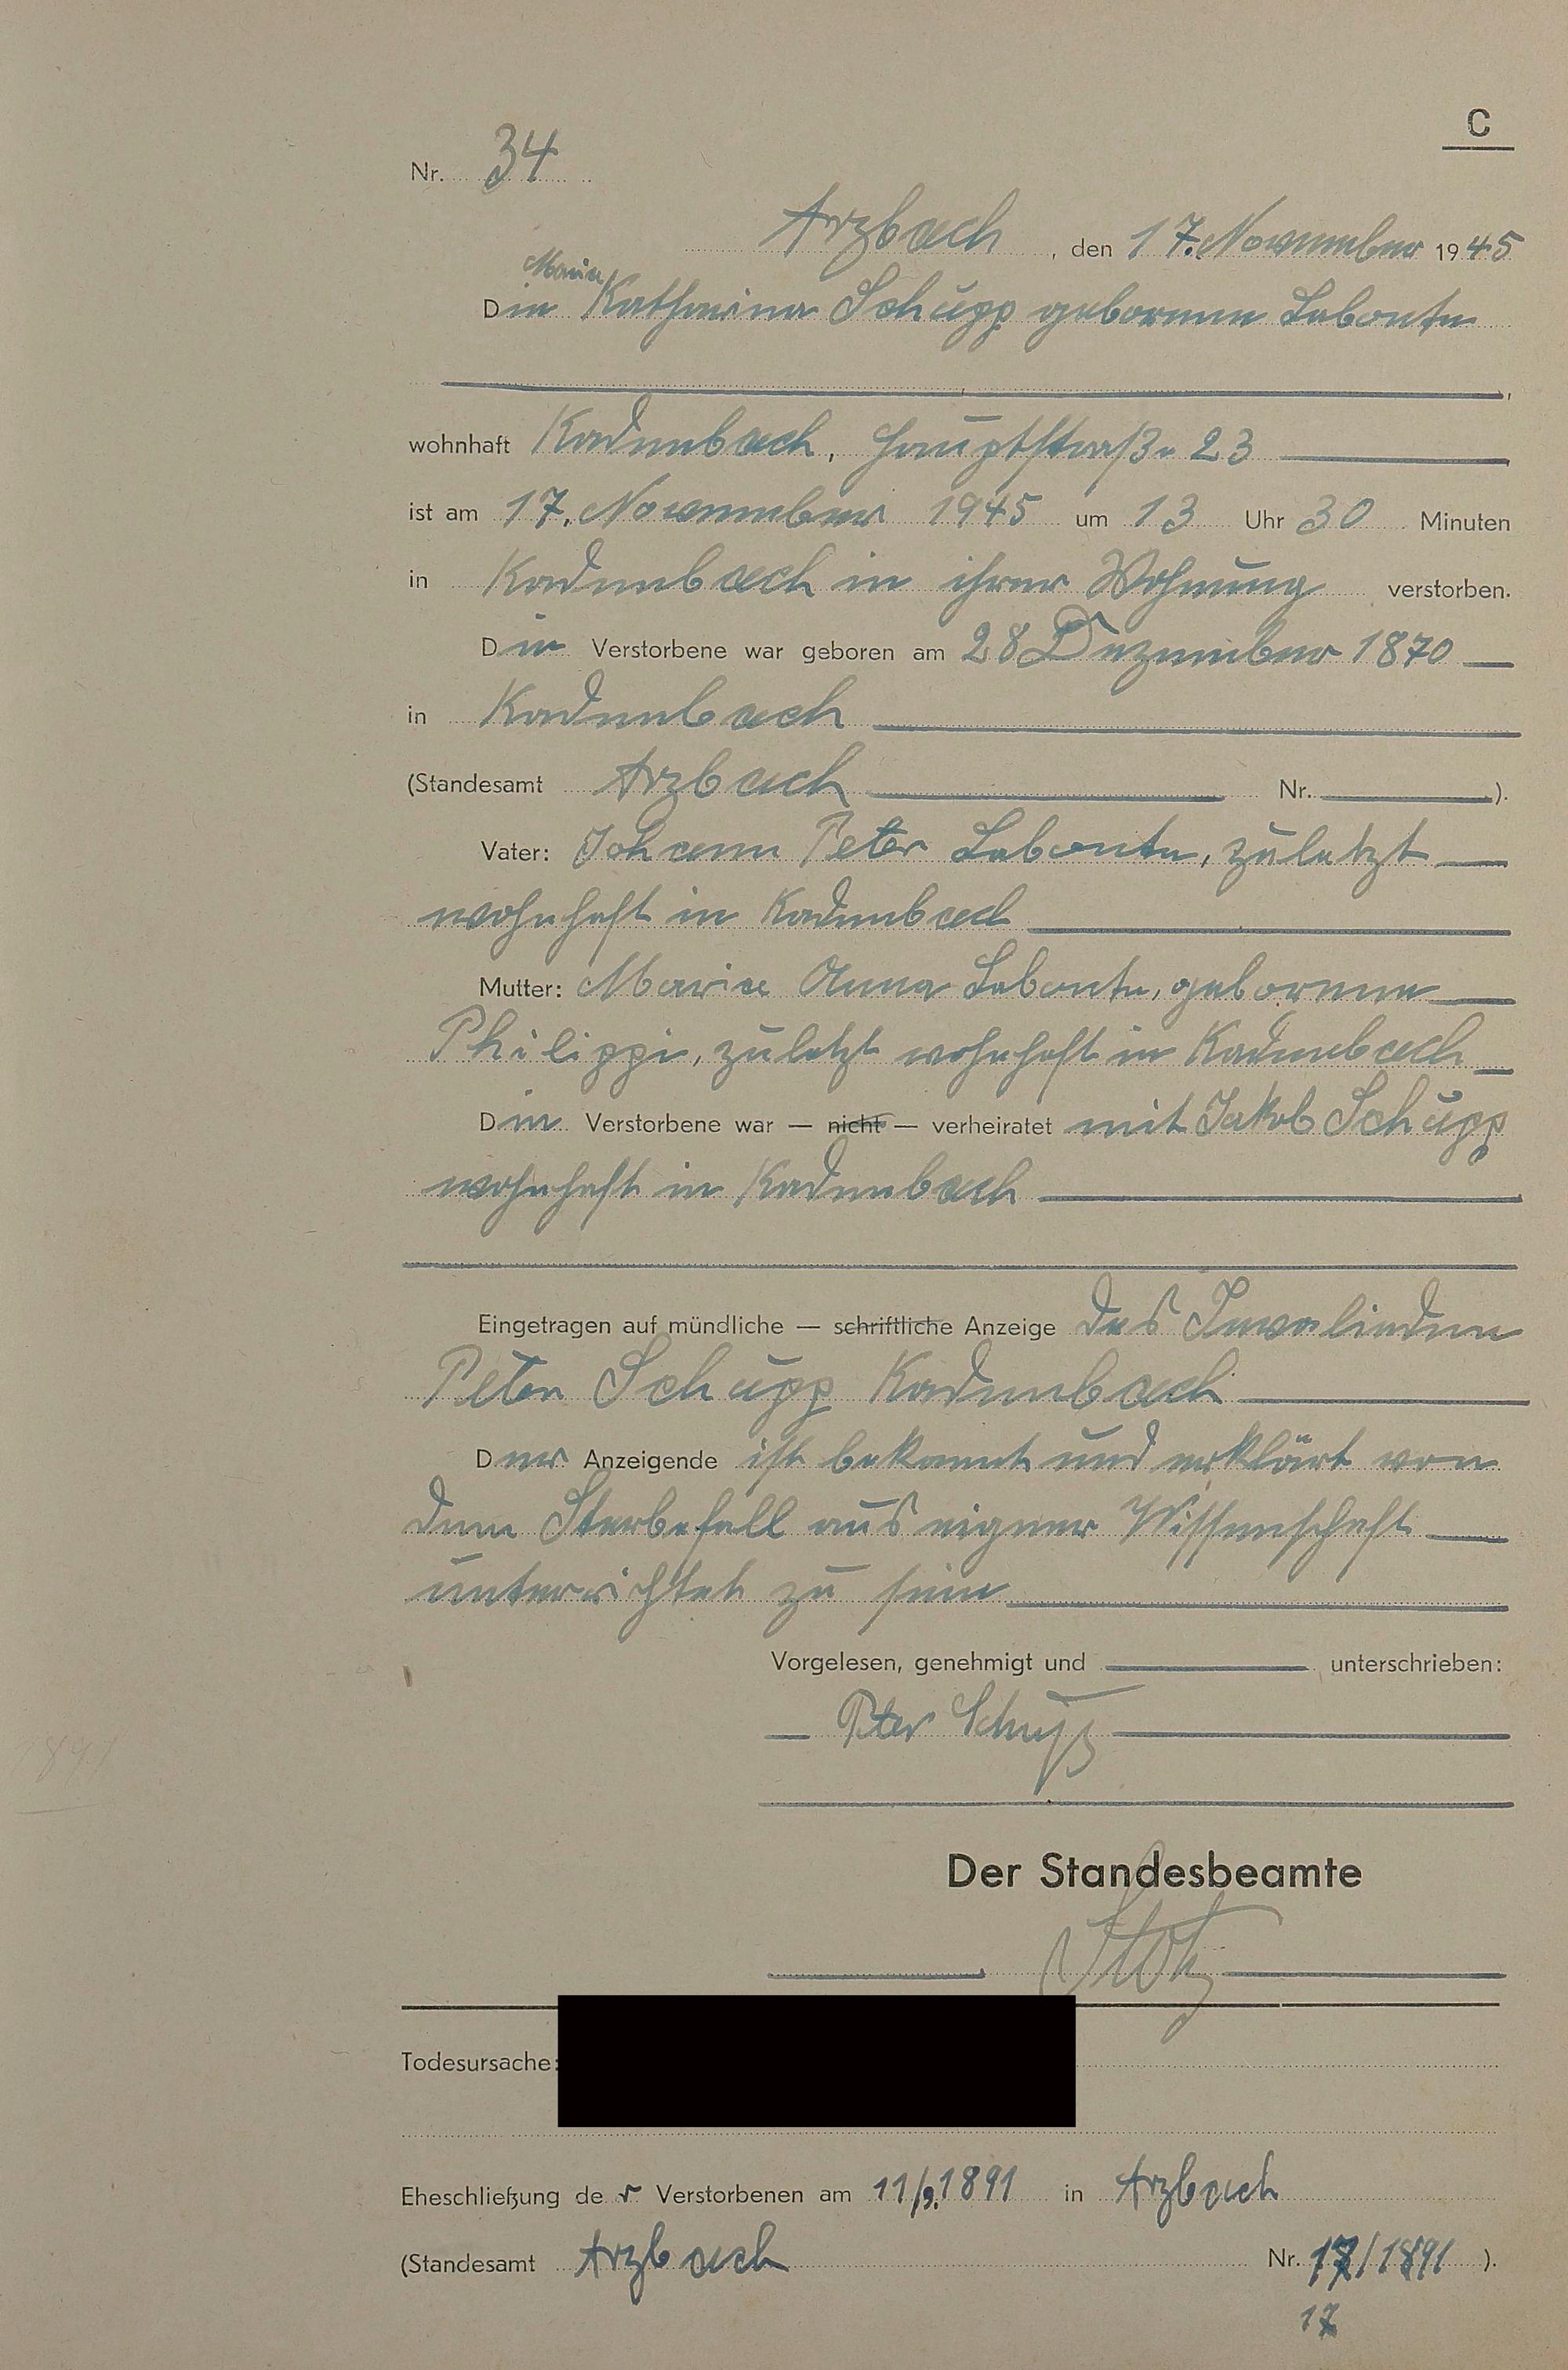 C
Nr. 34
Arzbach, den 17. November 1945
Maria
Die Katharina Schupp geborene Labonte
wohnhaft Kadenbach, Hauptstraße 23
ist am 17. November 1945 um 13 Uhr 30 Minuten
in Kadenbach in ihrer Wohnung verstorben.
Die Verstorbene war geboren am 28 Dezember 1870
in Kadenbach
(Standesamt Arzbach Nr. ).
Vater: Johann Peter Labonte, zuletzt
wohnhaft in Kadenbach
Mutter: Maria Anna Labonte, geborene
Philippi, zuletzt wohnhaft in Kadenbach
Die Verstorbene war — nicht — verheiratet mit Jakob Schupp
wohnhaft in Kadenbach
Eingetragen auf mündliche — schriftliche Anzeige des Invaliden
Peter Schupp Kadenbach
Der Anzeigende ist bekannt und erklärt von
dem Sterbefall aus eigener Wissenschaft
unterrichtet zu sein
Vorgelesen, genehmigt und unterschrieben:
Peter Schupp
Der Standesbeamte
Todesursache:
Eheschließung der Verstorbenen am 11/9.1891 in Arzbach
(Standesamt Arzbach Nr. 17/1891 ).
17
1891